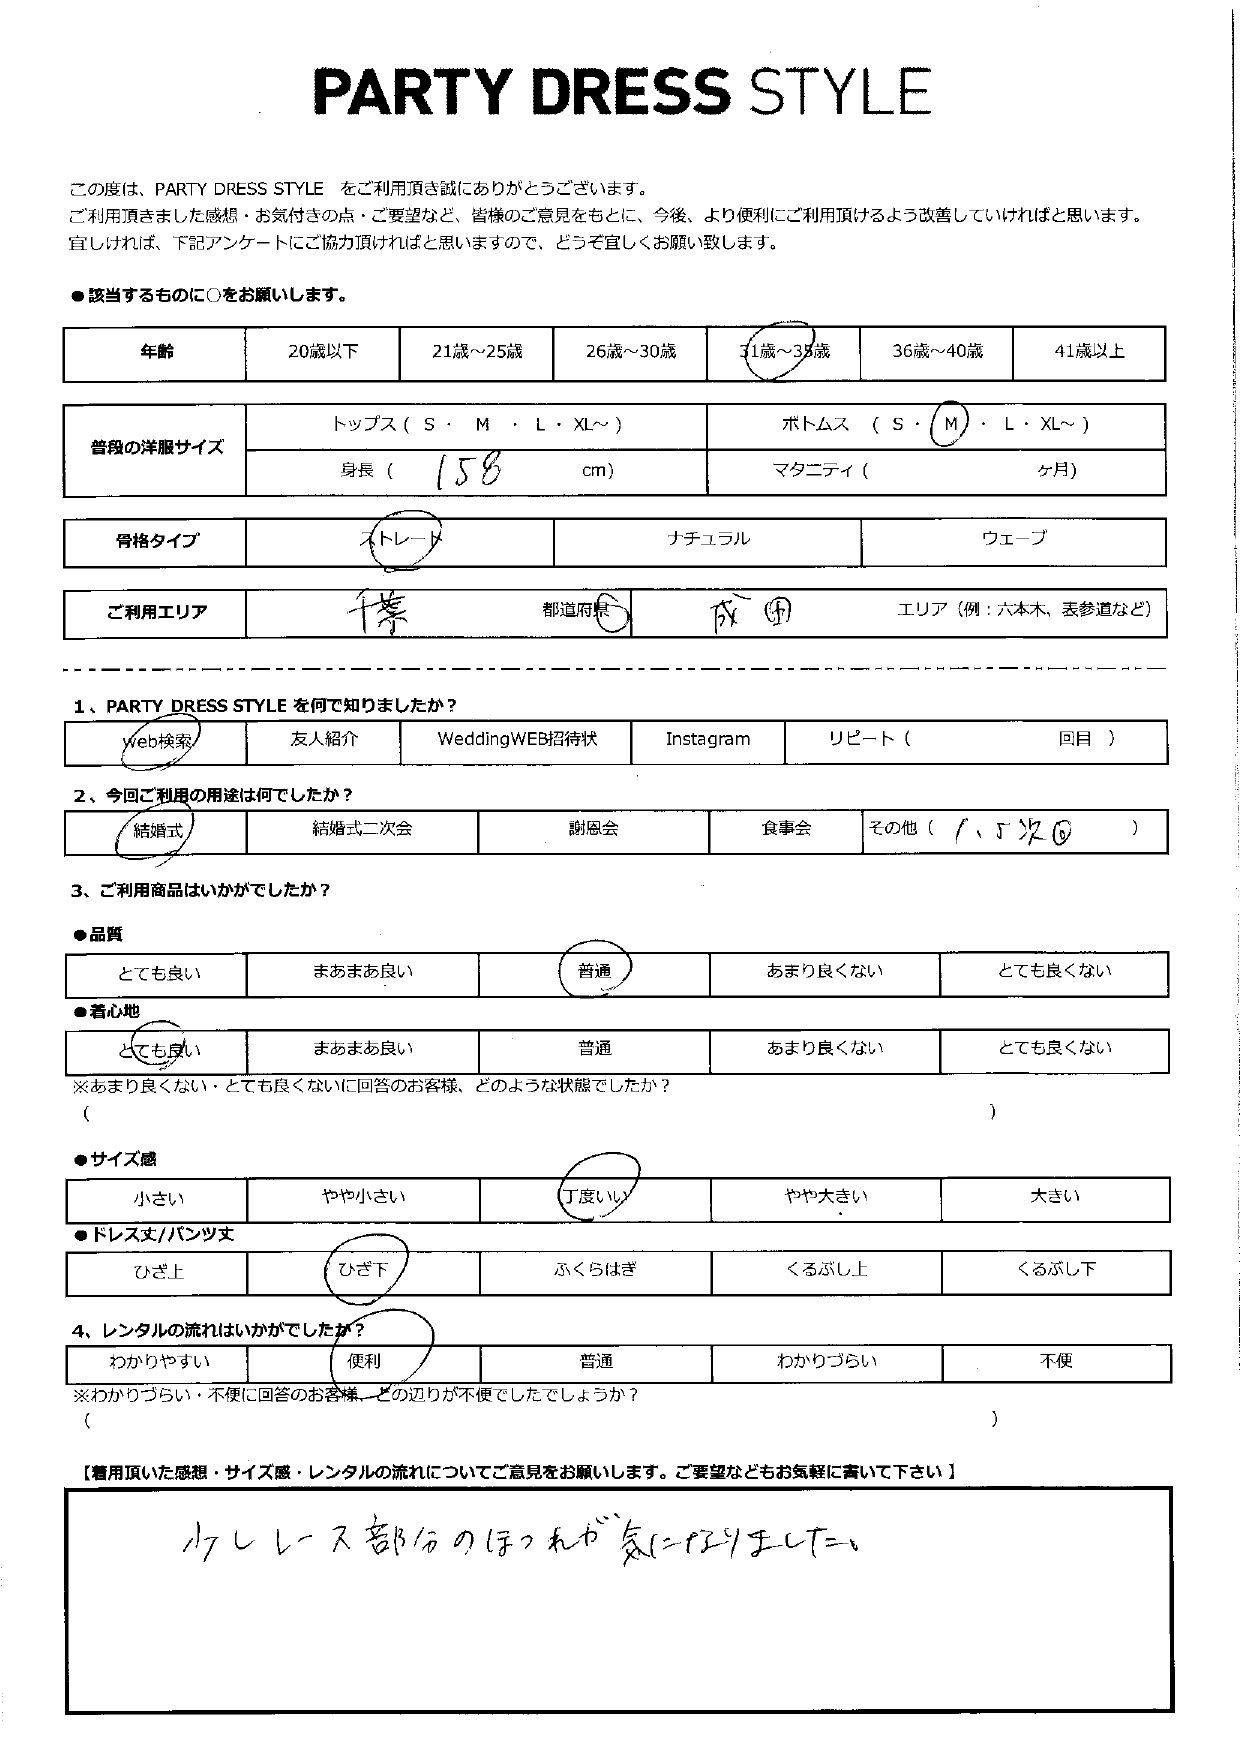 PARTY DRESS STYLE
この度は、PARTY DRESS STYLE をご利用頂き誠にありがとうございます。
ご利用頂きました感想・お気付きの点・ご要望など、皆様のご意見をもとに、今後、より便利にご利用頂けるよう改善していければと思います。
宜しければ、下記アンケートにご協力頂ければと思いますので、どうぞ宜しくお願い致します。
●該当するものに○をお願いします。
年齢 20歳以下 21歳～25歳 26歳～30歳 31歳～35歳 36歳～40歳 41歳以上
普段の洋服サイズ トップス（ S ・ M ・ L ・ XL～ ） ボトムス （ S ・ M ・ L ・ XL～ ）
身長（ 158 cm） マタニティ（ ヶ月）
骨格タイプ ストレート ナチュラル ウェーブ
ご利用エリア 千葉 都道府県 成田 エリア（例：六本木、表参道など）
1、PARTY DRESS STYLE を何で知りましたか？
web検索 友人紹介 WeddingWEB招待状 Instagram リピート（ 回目 ）
2、今回ご利用の用途は何でしたか？
結婚式 結婚式二次会 謝恩会 食事会 その他（ 1、5次回 ）
3、ご利用商品はいかがでしたか？
●品質
とても良い まあまあ良い 普通 あまり良くない とても良くない
●着心地
とても良い まあまあ良い 普通 あまり良くない とても良くない
※あまり良くない・とても良くないに回答のお客様、どのような状態でしたか？
（ ）
●サイズ感
小さい やや小さい 丁度いい やや大きい 大きい
●ドレス丈/パンツ丈
ひざ上 ひざ下 ふくらはぎ くるぶし上 くるぶし下
4、レンタルの流れはいかがでしたか？
わかりやすい 便利 普通 わかりづらい 不便
※わかりづらい・不便に回答のお客様、どの辺りが不便でしたでしょうか？
（ ）
【着用頂いた感想・サイズ感・レンタルの流れについてご意見をお願いします。ご要望などもお気軽に書いて下さい 】
少しレース部分のほつれが気になりました。